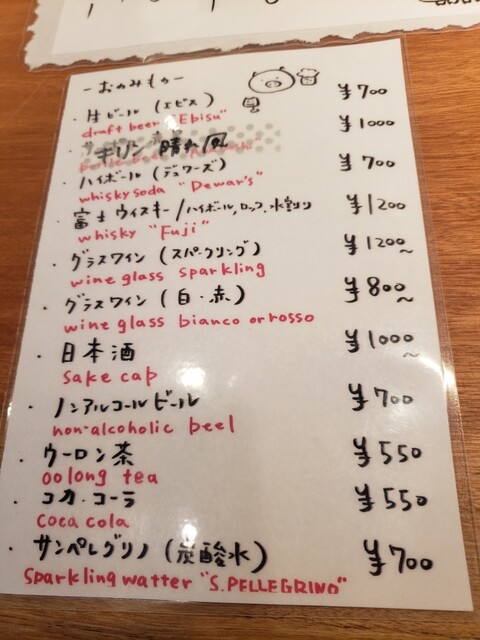 －おのみもの－
・生ビール (エビス) ¥700
draft beer "Ebisu"
キリン 晴れ風 ¥1000
・ハイボール (デュワーズ) ¥700
whisky soda "Dewar's"
・富士ウイスキー/ハイボール,ロック,水割り ¥1200
whisky "Fuji"
・グラスワイン (スパークリング) ¥1200~
wine glass sparkling
・グラスワイン (白・赤) ¥800~
wine glass bianco or rosso
・日本酒 ¥1000~
sake cap
・ノンアルコールビール ¥700
non-alcoholic beel
・ウーロン茶 ¥550
oolong tea
・コカ・コーラ ¥550
coca cola
・サンペレグリノ (炭酸水) ¥700
Sparkling watter "S.PELLEGRINO"